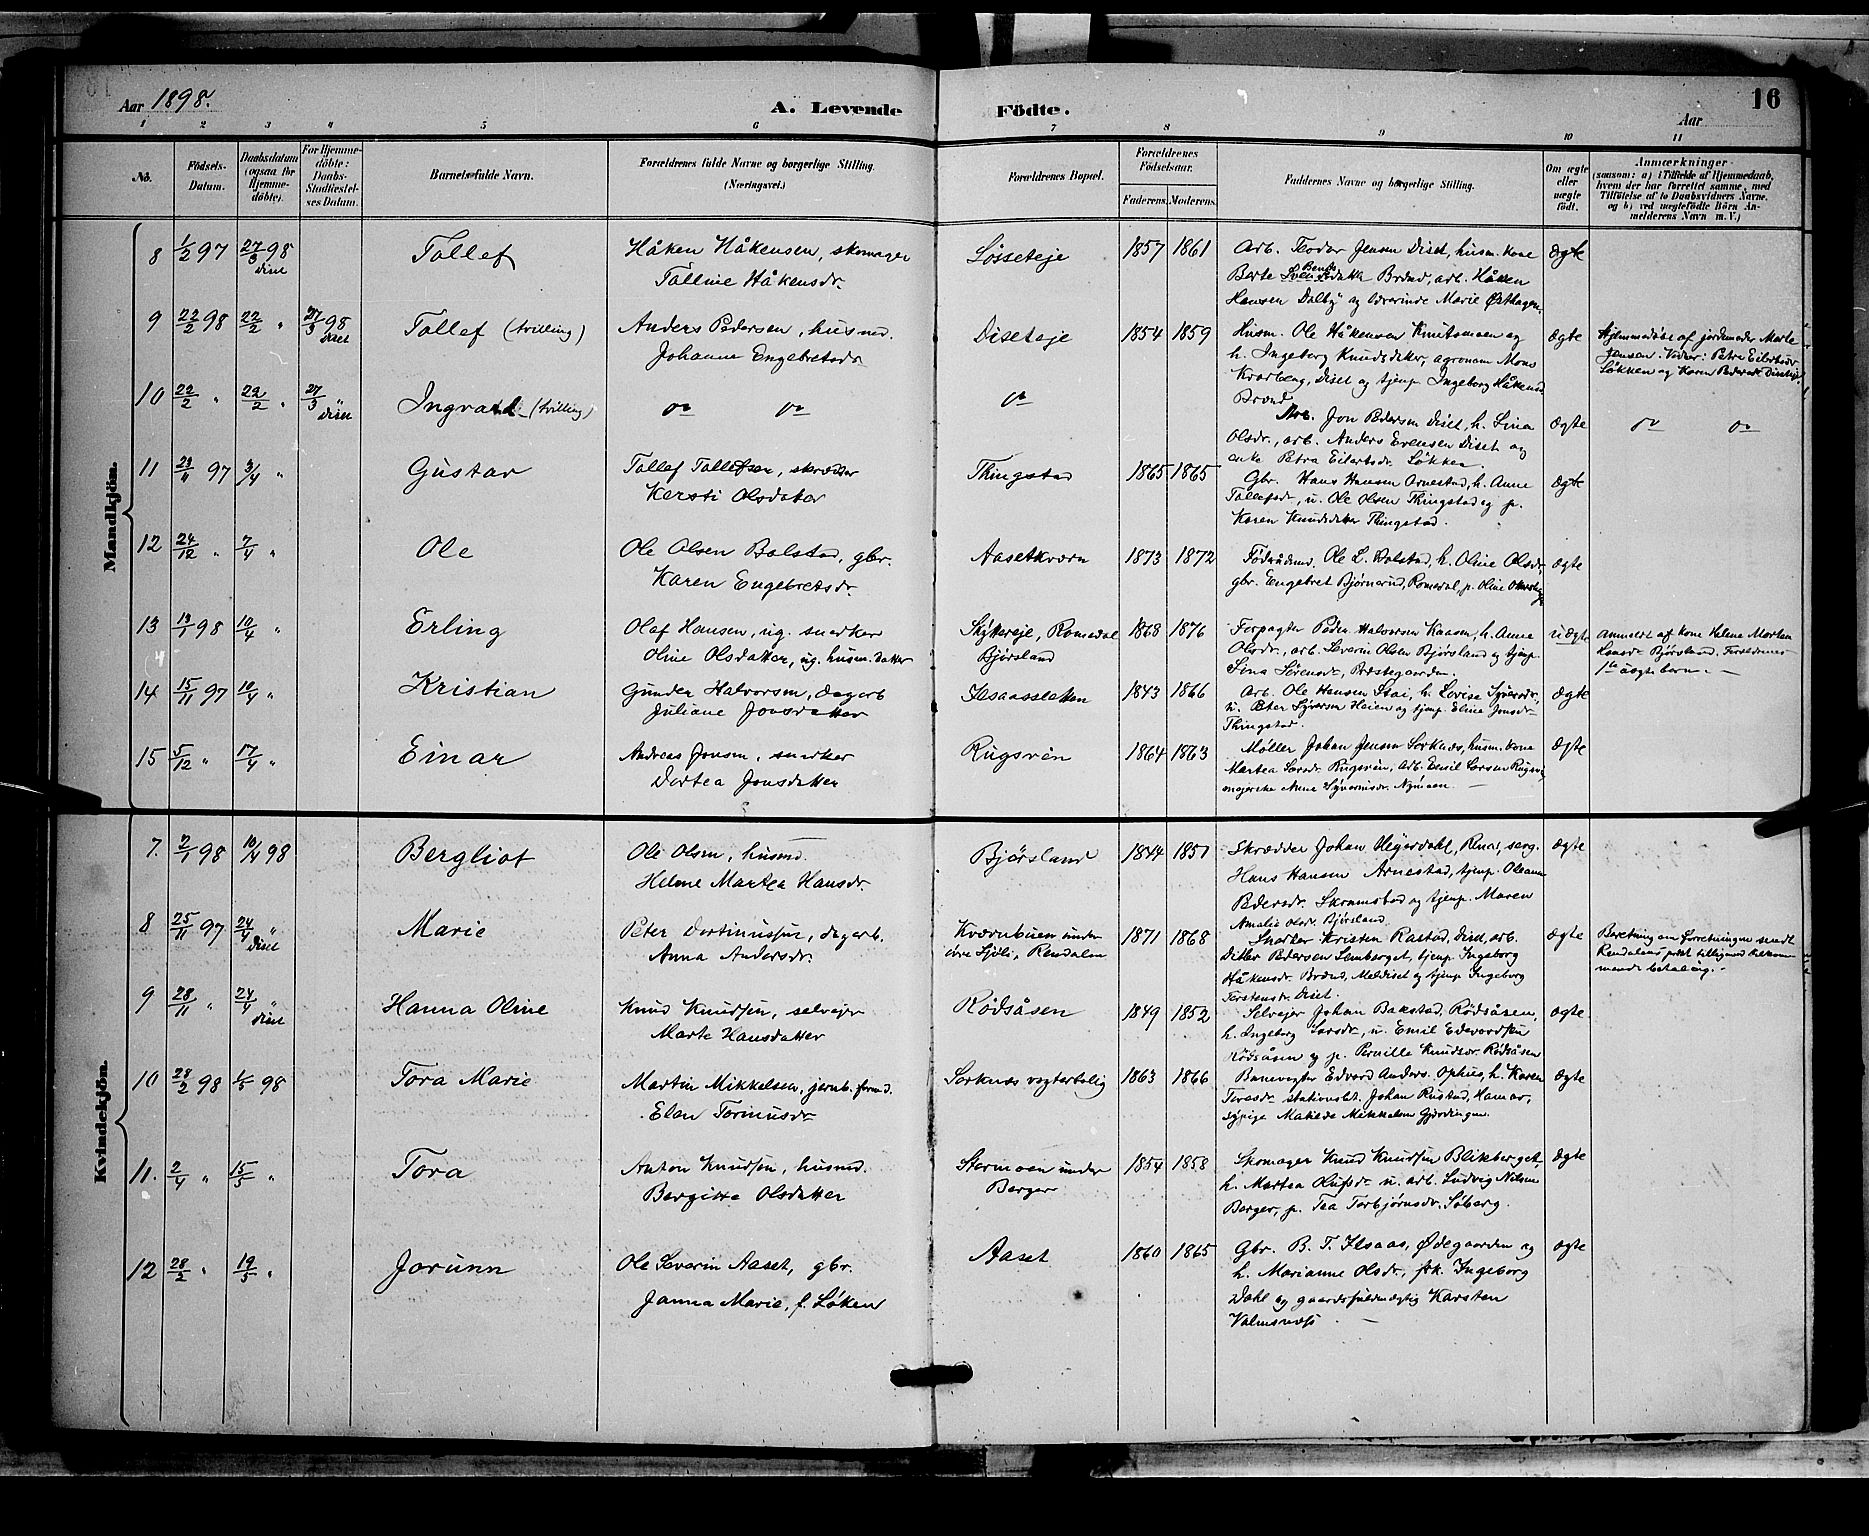 Aar 1898.
A. Levende Födte.
Aar
16
1 2 3 4 5 6 7 8 9 10 11
No.
Födsels-Datum.
Daabsdatum (ogsaa for Hjemme-döbte).
For Hjemme-döbte: Daabs-Stadfæstel-ses Datum.
Barnets fulde Navn.
Forældrenes fulde Navne og borgerlige Stilling. (Næringsvei.)
Forældrenes Bopæl.
Forældrenes Födselsaar.
Faderens. Moderens.
Faddernes Navne og borgerlige Stilling.
Om ægte eller uægte födt.
Anmærkninger (saasom: a) i Tilfælde af Hjemmedaab, hvem der har forrettet samme, med Tilföielse af to Daabsvidners Navne. og b) ved uægtefödte Börn An-melderens Navn m. V.)
Mandkjön.
8 1/2 97 27/3 98 Diset Tollef Håken Håkensen, skomager Løsseteje 1857 1861 Arb. Teodor Jensen Diset, husm. kone ægte
Tolline Håkensdr. Berte Bendikdatter Brænd, arb. Håken
Hansen Dalby og lærerinde Marie Østhagen
9 22/2 98 22/2 " 27/3 98 Diset Tollef (tvilling) Anders Pedersen, husmd. Diseteje 1854 1859 Husm. Ole Håkensen Knutsmoen og ægte Hjemmedøbt af jordemoder Marte
Johanne Engebretsdr. h. Ingeborg Knudsdatter, agronom Mons Jensen. Vidner: Petra Eilertsdr.
Kvarberg, Diset og tjenp. Ingeborg Håkensd. Løkken og Karen Pedersdr. Diseteje
Brænd
10 22/2 " 22/2 " 27/3 " Diset Ingvald (tvilling) do do do Arb. Jon Pedersen Diset, h. Lina ægte do do
Olsdr., arb. Anders Evensen Diset og
enke Petra Eilertsdr. Løkken.
11 29/11 97 3/4 " Gustav Tollef Tollefsen, skrædder Thingstad 1865 1865 Gbr. Hans Hansen Arnestad, h. Anne ægte
Kersti Olsdatter Tollefsdr., u. Ole Olsen Thingstad og p.
Karen Knudsdatter Thingstad.
12 24/12 " 7/4 " Ole Ole Olsen Bolstad, gbr. Aasetkværn 1873 1872 Føderaadsmd. Ole L. Bolstad, h. Oline Olsdr. ægte
Karen Engebretsdr. gbr. Engebret Bjørnerud, Romedal, p. Oline
13 13/1 98 10/4 " Erling Olaf Hansen, ug. snedker Skytereje, Romedal 1868 1876 Forpagter Peder Halvorsen Kaasen, h. Anne uægte Anmeldt af kone Helene Martea
Oline Olsdatter, ug. husm. datter Bjørsland Olsdr., arb. Severin Olsen Bjørsland og tjenp. Hansdr. Bjørsland. Forældrenes
Lina Sørensdr., Præstegaarden. 1ste uægte barn. —
14 15/11 97 10/4 " Kristian Gunder Halvorsen, dagarb Jasaassletten 1843 1866 Arb. Ole Hansen Stai, h. Lovise Syversdr., ægte
Juliane Jonsdatter u. Peter Syversen Heien og tjenp. Eline Jonsdr.
Thingstad.
15 5/12 " 17/4 " Einar Andreas Jonsen, snedker Rugsvéen 1864 1863 Møller Johan Jensen Sorknæs, husm. kone ægte
Dortea Jonsdatter Martea Larsdr. Rugsvéen, arb. Emil Larsen Rugsv.
Anne Syversdr. Nymoen. —
Kvindekjön.
7. 2/1 98 10/4 98 Bergliot Ole Olsen, husmd. Bjørsland 1844 1851 Skrædder Johan Heyerdahl, Rena, serg. ægte
Helene Martea Hansdr. Hans Hansen Arnestad, tjenp. Oleanna
Pedersdr. Skramstad og tjenp. Maren
Amalia Olsdr. Bjørsland
8 25/11 97 24/4 " Diset Marie Peter Dortinussen, dagarb. Kværnbuen under 1871 1868 Snedker Kristen Rastad, Diset, arb. ægte Beretning om forretningen sendt
Anna Andersdr. øvre Sjöli, Rendalen Ditlev Pedersen Lemberget, tjenp. Ingeborg Rendalens prest tilligemed tilkom-
Håkensdr. Brænd, Meldiset og tjenp. Ingeborg mende betaling. —
Torstensdr. Diset.
9 28/11 " 24/4 " Diset Hanna Oline Knud Knudsen, selvejer Rødsåsen 1849 1852 Selvejer Johan Bakstad, Rødsåsen, ægte
Marte Hansdatter h. Ingeborg Larsdr., u. Emil Edvardsen
Rødsåsen og p. Pernille Knudsdr. Rødsåsen
10 28/2 98 1/5 98 Tora Marie Martin Mikkelsen, jernb. formd. Sorknæs vogterbolig 1863 1866 Banevogter Edvard Anders. Ophus, h. Karen ægte
Elen Tormusdr. Toresdr. stationsbt. Johan Rustad, Hamar,
sypige Matilde Mikkelsen Gjørdingen.
11. 2/4 " 15/5 " Tora Anton Knudsen, husmd. Stormoen under 1854 1858 Skomager Knud Knudsen Blikberget, ægte
Bergitte Olsdatter Berger h. Martea Olufsdr. u. arb. Ludvig Nilsen
Berger, p. Tea Torbjørnsdr. Søberg.
12 28/2 " 19/5 " Jorunn Ole Severin Aaset, gbr. Aaset 1860 1865 Gbr. B. T. Ilsaas, Ødegaarden og ægte
Janna Marie, f. Løken h. Marianne Olsdr., frk. Ingeborg
Dahl og gaardsfuldmægtig Karsten
Valmsnæss. —